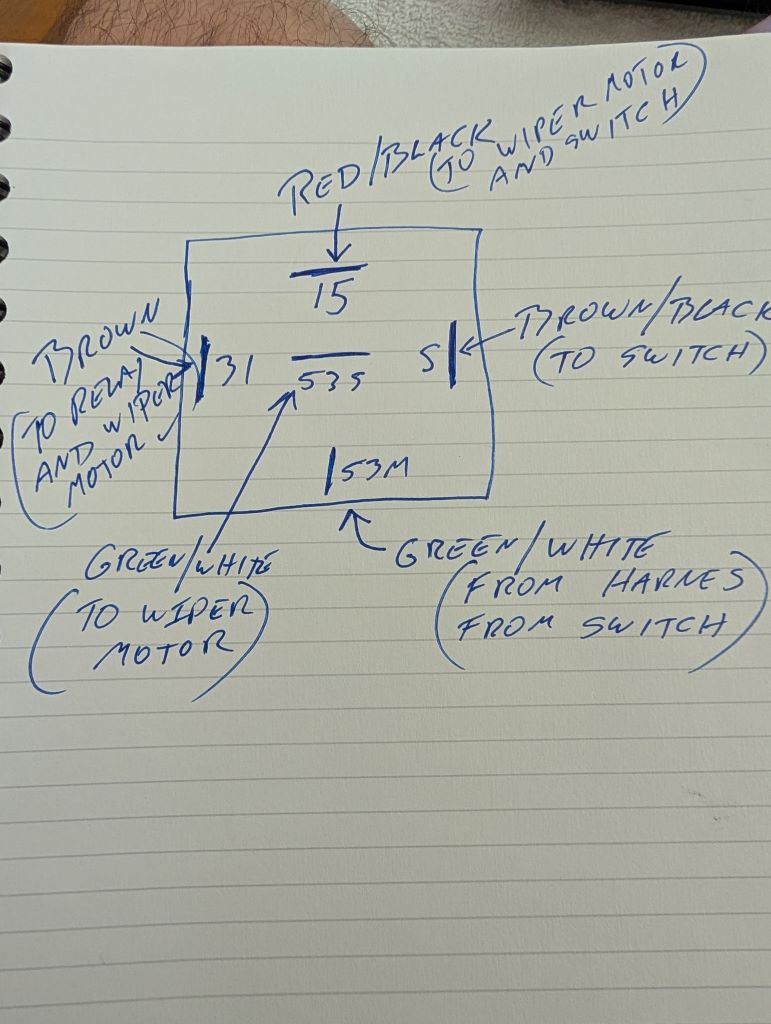 RED/BLACK
(TO WIPER MOTOR
AND SWITCH)
15
BROWN
(TO RELAY
AND WIPER
MOTOR
31
53S
S
BROWN/BLACK
(TO SWITCH)
53M
GREEN/WHITE
(TO WIPER
MOTOR)
GREEN/WHITE
(FROM HARNES
FROM SWITCH)